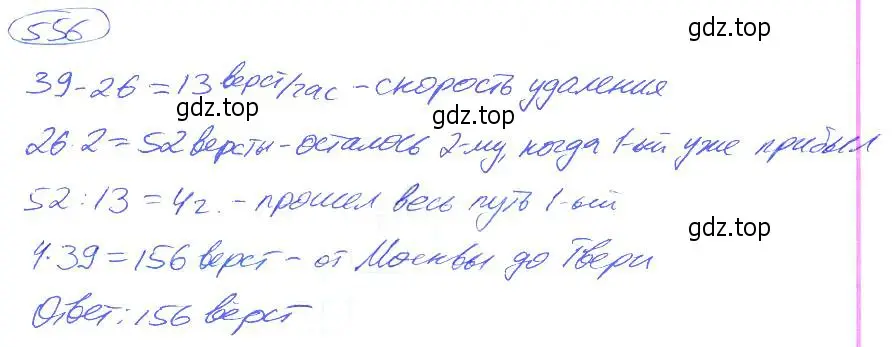 556
39-26=13 верст/час - скорость удаления
gdz.top
gdz.top
26·2=52 версты - осталось 2-му, когда 1-ый уже прибыл
52:13=4г. - прошел весь путь 1-ый
gdz.top
4·39=156 верст - от Москвы до Твери
Ответ: 156 вёрст